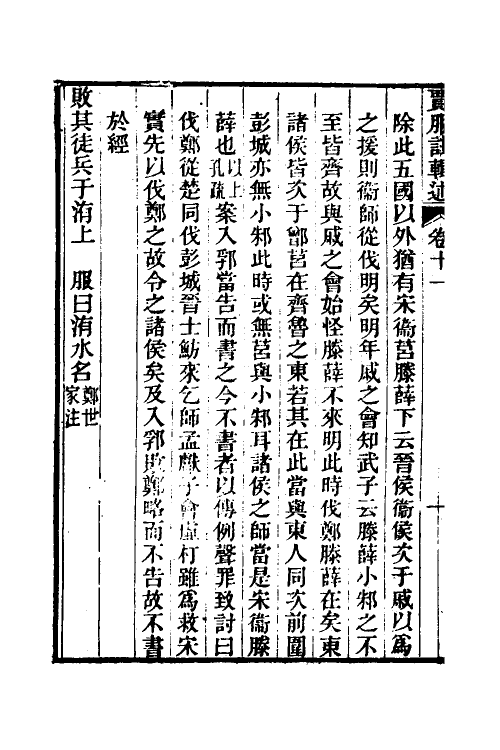 賈服註輯述 卷十一
除此五國以外猶有宋衞莒滕薛下云晉侯衞侯次于戚以爲
之援則衞師從伐明矣明年戚之會知武子云滕薛小邾之不
至皆齊故與戚之會始怪滕薛不來明此時伐鄭滕薛在矣東
諸侯皆次于鄫莒在齊魯之東若其在此當與東人同次前圍
彭城亦無小邾此時或無莒與小邾耳諸侯之師當是宋衞滕
薛也以上孔疏案入郛當告而書之今不書者以傳例聲罪致討曰
伐鄭從楚同伐彭城晉士魴來乞師孟獻子會虛朾雖爲救宋
實先以伐鄭之故令之諸侯矣及入郛敗鄭略而不告故不書
於經
敗其徒兵于洧上 服曰洧水名鄭世家注
十